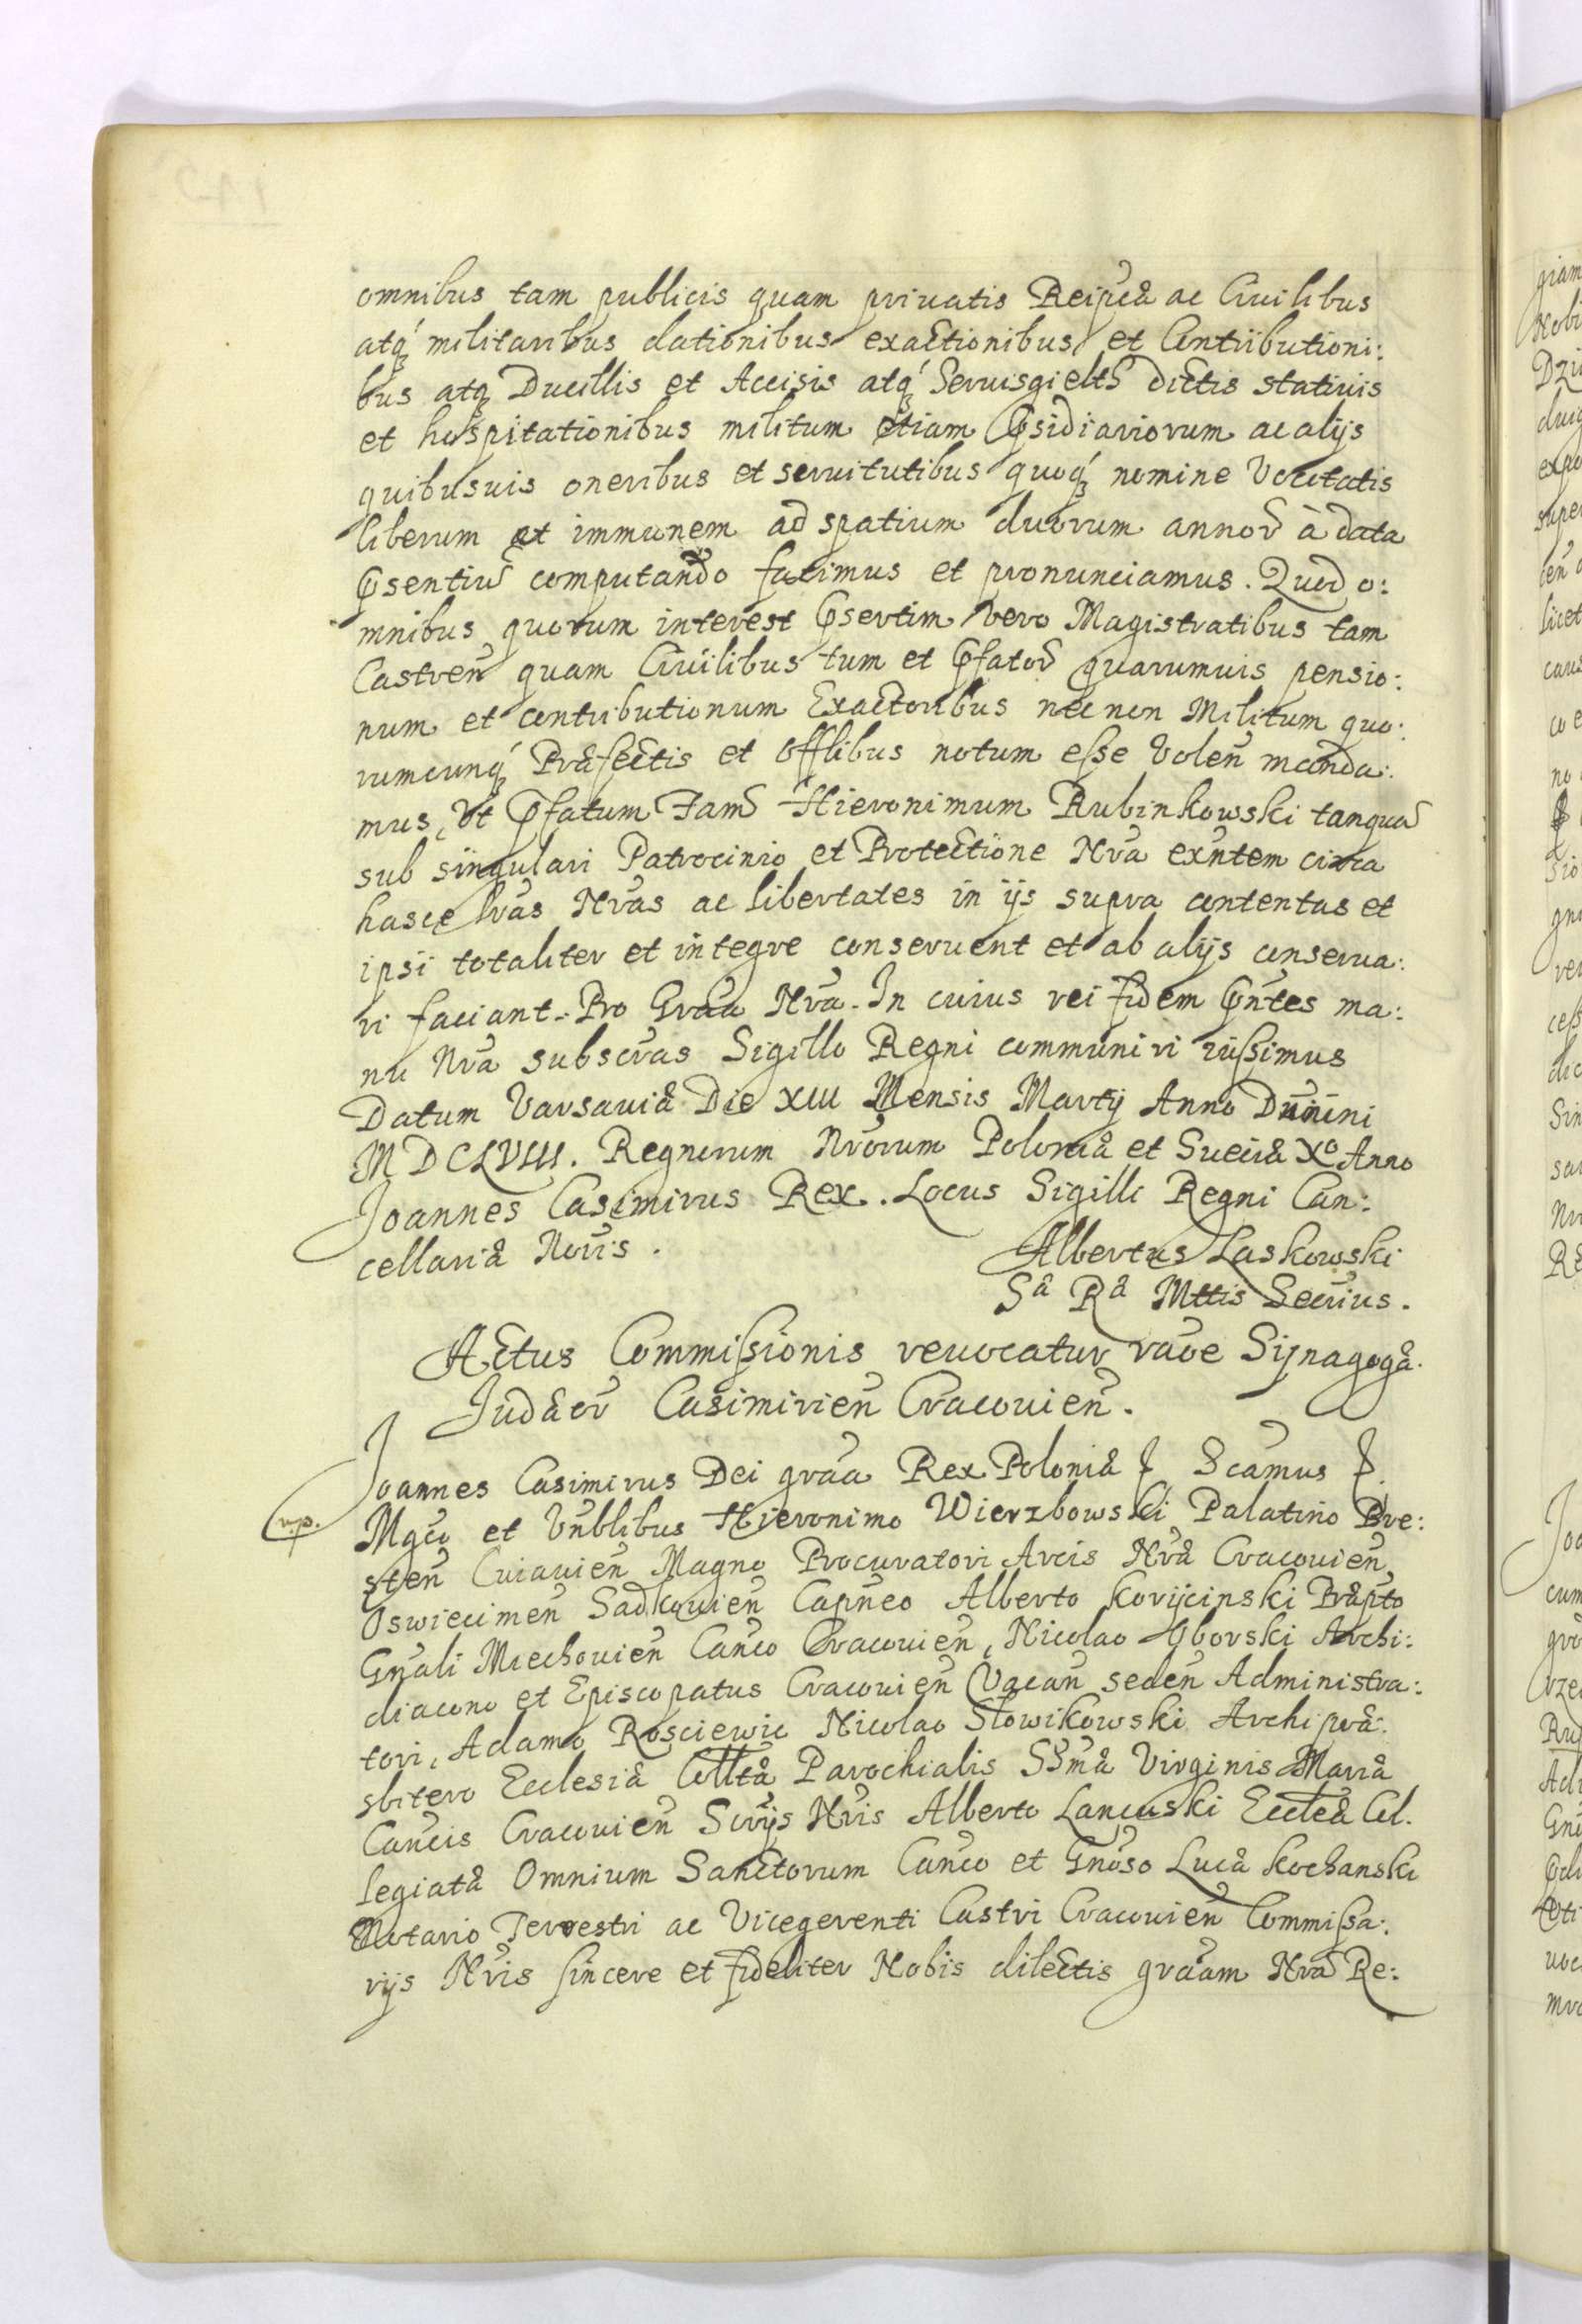 omnibus tam publicis quam priuatis Reipcæ ac Ciuilibus
atq́ militaribus dationibus exactionibus et Contributioni:
bus atq Ducillis et Accisis atq́ Seruisgielts dictis statiuis
et hospitationibus militum etiam Psidiariorum ac alijs
quibusuis oneribus et seruitutibus quoq́ nomine Vocitatis
liberum et immunem ad spatium duorum annor̃ à data
Psentiũ computando facimus et pronunciamus. Quod o:
mnibus quorum interest Psertim vero Magistratibus tam
Castren̄ quam Ciuilibus tum et Pfator̃ quarumuis pensio:
num et contributionum Exactoribus nec non Militum quo:
rumcunq́ Præfectis et Offlibus notum esse Volen̄ manda:
mus, Ut Pfatum Fam̃ Hieronimum Rubinkowski tanquã
sub singulari Patrocinio et Protectione Nrã exñtem circa
hasce Lrãs Nrãs ac libertates in ijs supra contentas et
ipsi totaliter et integre conseruent et ab alijs conserua:
ri faciant. Pro Grãa Nrã. In cuius rei fidem Pñtes ma:
nu Nrã subscrãs Sigillo Regni communiri iussimus
Datum Varsauiæ Die XIII Mensis Martij Anno Dñini
MDCLVIII. Regnorum Nrõrum Poloniæ et Sueciæ Xº Anno
Joannes Casimirus Rex. Locus Sigilli Regni Can:
cellariæ Noris.
Albertus Laskowski
Sæ Ræ Mttis Secrius.
Actus Commissionis reuocatur raõe Sijnagogæ
Judæor̃ Casimirien̄ Cracouien̄.
Joannes Casimirus Dei grãa Rex Poloniæ Scamus
np.
Mgco et Vnblibus Hieronimo Wierzbowski Palatino Bre:
sten̄ Cuiauien̄ Magno Procuratori Arcis Nræ Cracouien̄
Oswiecimen̄ Sadkouien̄ Capneo Alberto Korijcinski Præpto
Gnali Miechouien̄ Canco Cracouien̄, Nicolao Oborski Archi:
diacono et Episcopatus Cracouien̄ Vacan̄ seden̄ Administra:
tori, Adamo Rosciewic Nicolao Słowikowski Archipræ:
sbitero Ecclesiæ Colltæ Parochialis SSmæ Virginis Mariæ
Cancis Cracouien̄ Scrijs Nris Alberto Lancuski Eccleæ Col.
legiatæ Omnium Sanctorum Canco et Gnoso Lucæ Kochanski
Notario Terrestri ac Vicegerenti Castri Cracouien̄ Commissa:
rijs Nris sincere et fideliter Nobis dilectis grãam Nrã Re: